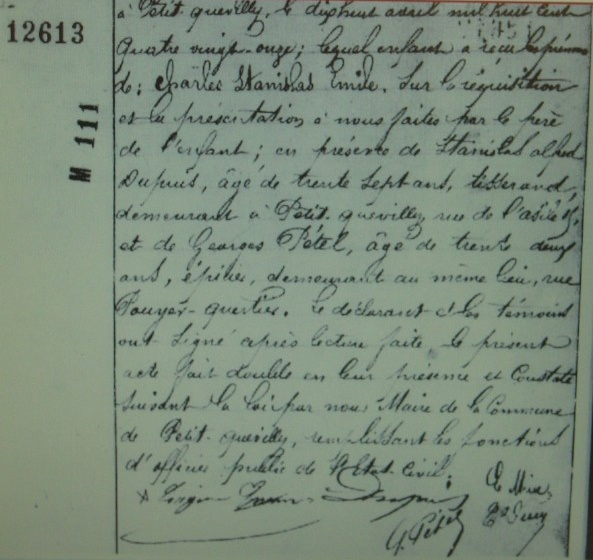 12613
M 111
à Petit quevilly, le dixhuit avril mil huit cent
quatre vingt-onze; lequel enfant a reçu les prénoms
de; Charles Stanislas Emile. Sur la réquisition
et la présentation à nous faites par le père
de l'enfant; en présence de Stanislas alfred
Dupuis, âgé de trente sept ans, tisserand,
demeurant à Petit-quevilly, rue de l'asile
et de Georges Pétel, âgé de trente deux
ans, épicier, demeurant au même lieu, rue
Pouyer-quertier. Le déclarant et les témoins
ont signé après lecture faite le présent
acte fait double en leur présence et constaté
suivant la loi par nous Maire de la Commune
de Petit-quevilly, remplissant les fonctions
d'officier public de l'Etat Civil;
G. Pétel